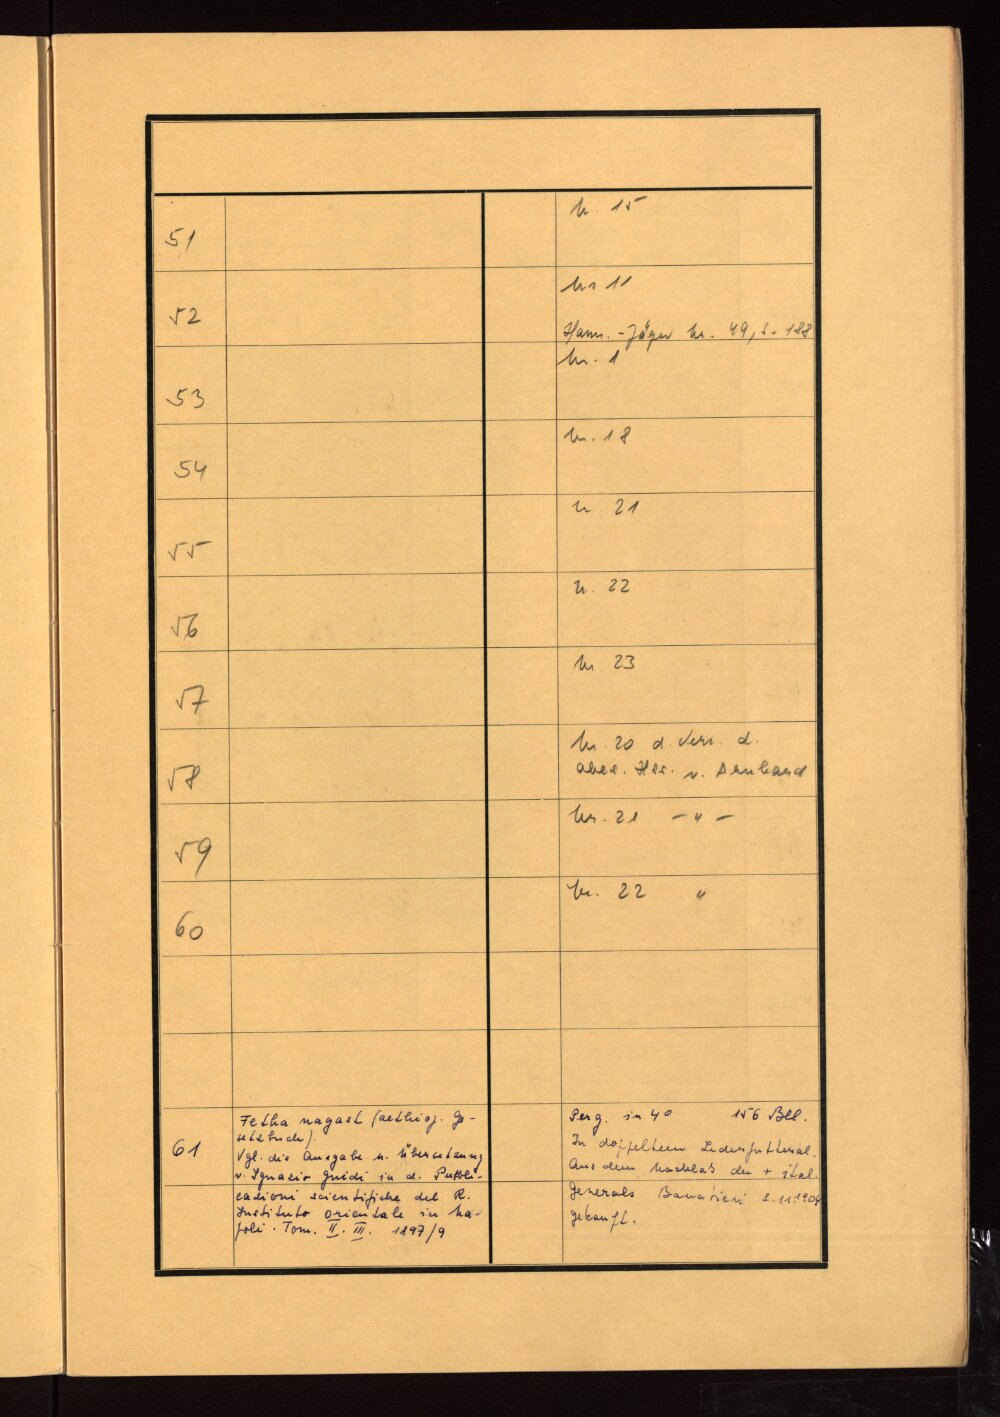 51 Nr. 15
52 Nr 11
Hamm.-Jäger Nr. 49, S. 188
53 Nr. 1
54 Nr. 18
55 Nr. 21
56 Nr. 22
57 Nr. 23
58 Nr. 20 d. Verz. d.
abes. Hss. v. Arnhard
59 Nr. 21 — " —
60 Nr. 22 "
61
Fetha nagast (aethiop. Ge-
setzbuch).
Vgl. die Ausgabe u. Übersetzung
v. Ignazio Guidi in d. Pubbli-
cazioni scientifiche del R.
Instituto orientale in Na-
poli. Tom. II. III. 1897/9
Perg. in 4º 156 Bll.
In doppeltem Lederfutteral.
Aus dem Nachlaß des + ital.
Generals Baratieri 2.11.1904
gekauft.